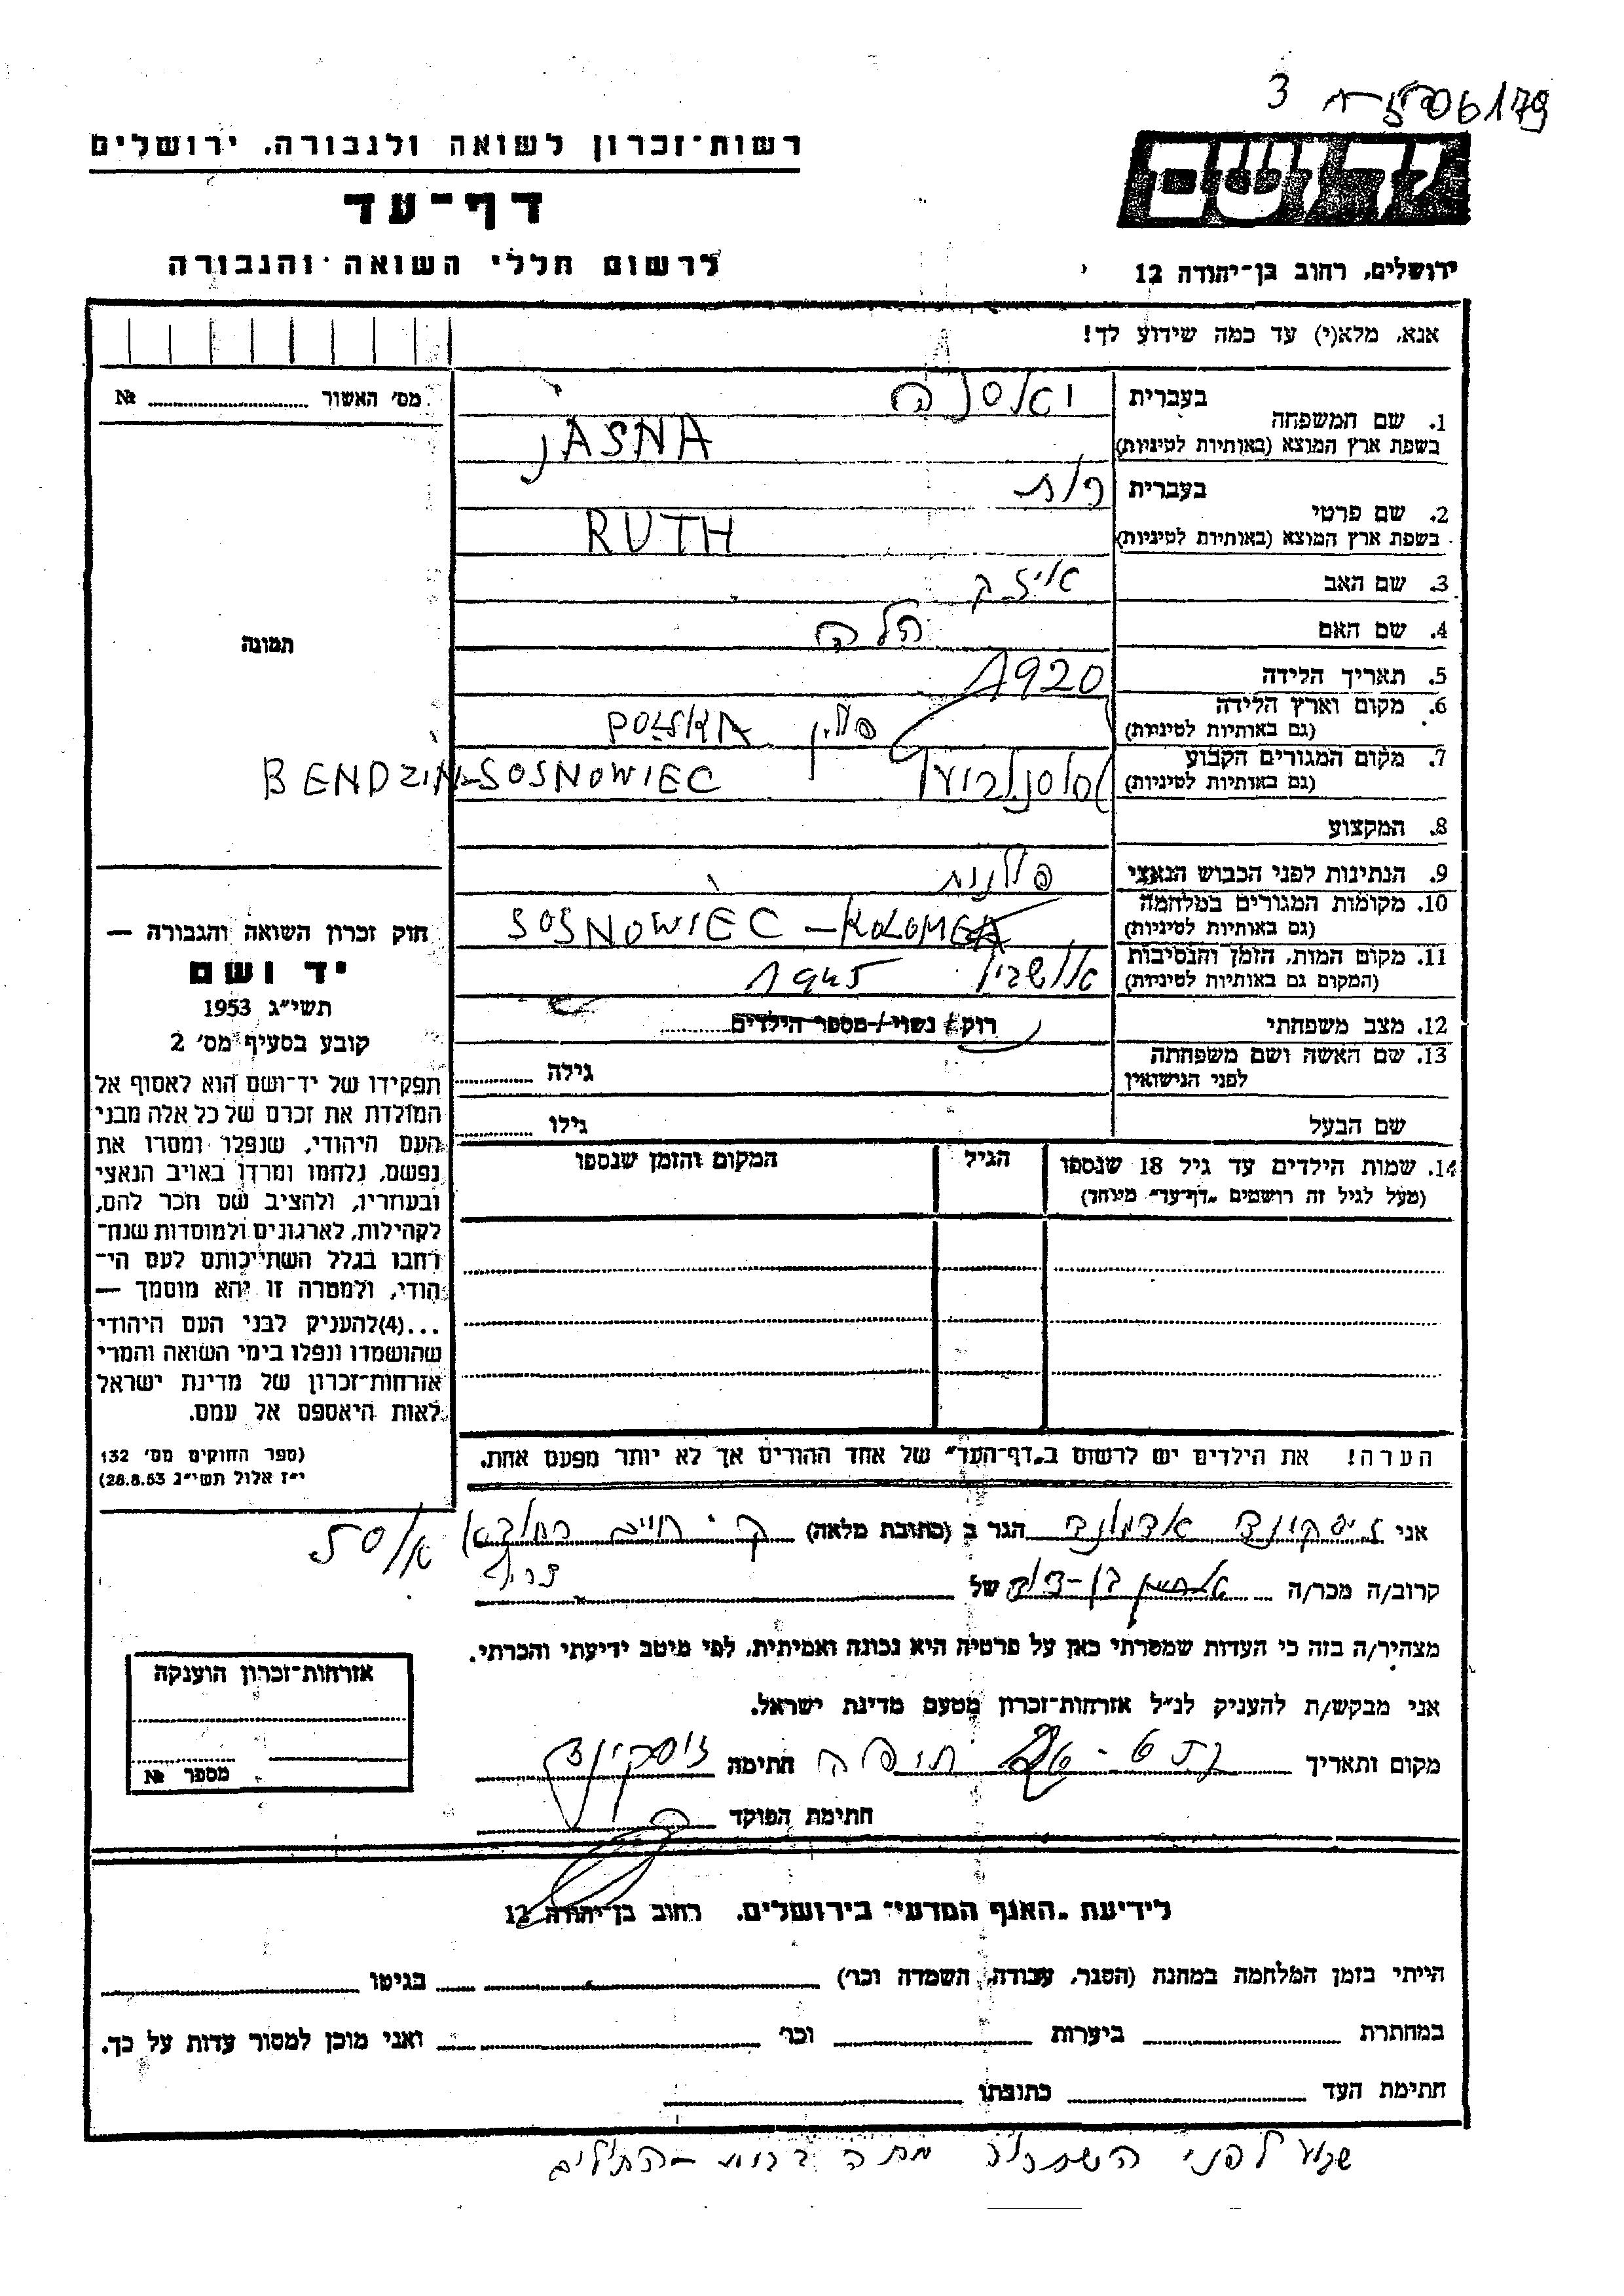 3 א-506179
רשות-זכרון לשואה ולגבורה, ירושלים
דף-עד
לרשום חללי השואה והגבורה
ירושלים, רחוב בן-יהודה 12
אנא, מלא(י) עד כמה שידוע לך!
מס' האשור № 
1. שם המשפחה
בעברית
יאסנה
בשפת ארץ המוצא (באותיות לטיניות)
JASNA
2. שם פרטי
בעברית
רות
בשפת ארץ המוצא (באותיות לטיניות)
RUTH
3. שם האב
אייזק
4. שם האם
הלה
5. תאריך הלידה
1920
6. מקום וארץ הלידה
(גם באותיות לטיניות)
פולין
7. מקום המגורים הקבוע
(גם באותיות לטיניות)
סוסנוביץ
BENDZIN-SOSNOWIEC
8. המקצוע
9. הנתינות לפני הכבוש הנאצי
פולנית
10. מקומות המגורים במלחמה
(גם באותיות לטיניות)
SOSNOWIEC – KOLOMEA
11. מקום המות, הזמן והנסיבות
(המקום גם באותיות לטיניות)
אושביץ 1945
12. מצב משפחתי
רוק/ נשוי/ מספר הילדים
13. שם האשה ושם משפחתה
לפני הנישואין
גילה
שם הבעל
גילו
14. שמות הילדים עד גיל 18 שנספו
(מעל לגיל זה רושמים „דף-עד" מיוחד)
הגיל
המקום והזמן שנספו
הערה! את הילדים יש לרשום ב„דף-העד" של אחד ההורים אך לא יותר מפעם אחת.
תמונה
חוק זכרון השואה והגבורה —
יד ושם
תשי"ג 1953
קובע בסעיף מס' 2
תפקידו של יד-ושם הוא לאסוף אל
המולדת את זכרם של כל אלה מבני
העם היהודי, שנפלו ומסרו את
נפשם, נלחמו ומרדו באויב הנאצי
ובעוזריו, ולהציב שם וזכר להם,
לקהילות, לארגונים ולמוסדות שנח-
רבו בגלל השתייכותם לעם הי-
הודי, ולמטרה זו יהא מוסמך —
...(4)להעניק לבני העם היהודי
שהושמדו ונפלו בימי השואה והמרי
אזרחות-זכרון של מדינת ישראל
לאות היאספם אל עמם.
(ספר החוקים מס' 132
י"ז אלול תשי"ג 28.8.53)
אני זיסקינד אדמונד הגר ב (כתובת מלאה) ק. חיים
קרוב/ה מכר/ה בן-דוד של
מצהיר/ה בזה כי העדות שמסרתי כאן על פרטיה היא נכונה ואמיתית, לפי מיטב ידיעתי והכרתי.
אני מבקש/ת להעניק לנ"ל אזרחות-זכרון מטעם מדינת ישראל.
מקום ותאריך חיפה חתימה זיסקינד
חתימת הפוקד
אזרחות-זכרון הוענקה
מספר №
לידיעת „האגף המדעי" בירושלים, רחוב בן-יהודה 12
הייתי בזמן המלחמה במחנה (הסגר, עבודה, השמדה וכו') בגיטו
במחתרת ביערות וכו' ואני מוכן למסור עדות על כך.
חתימת העד כתובתו
לפני השחרור מתה